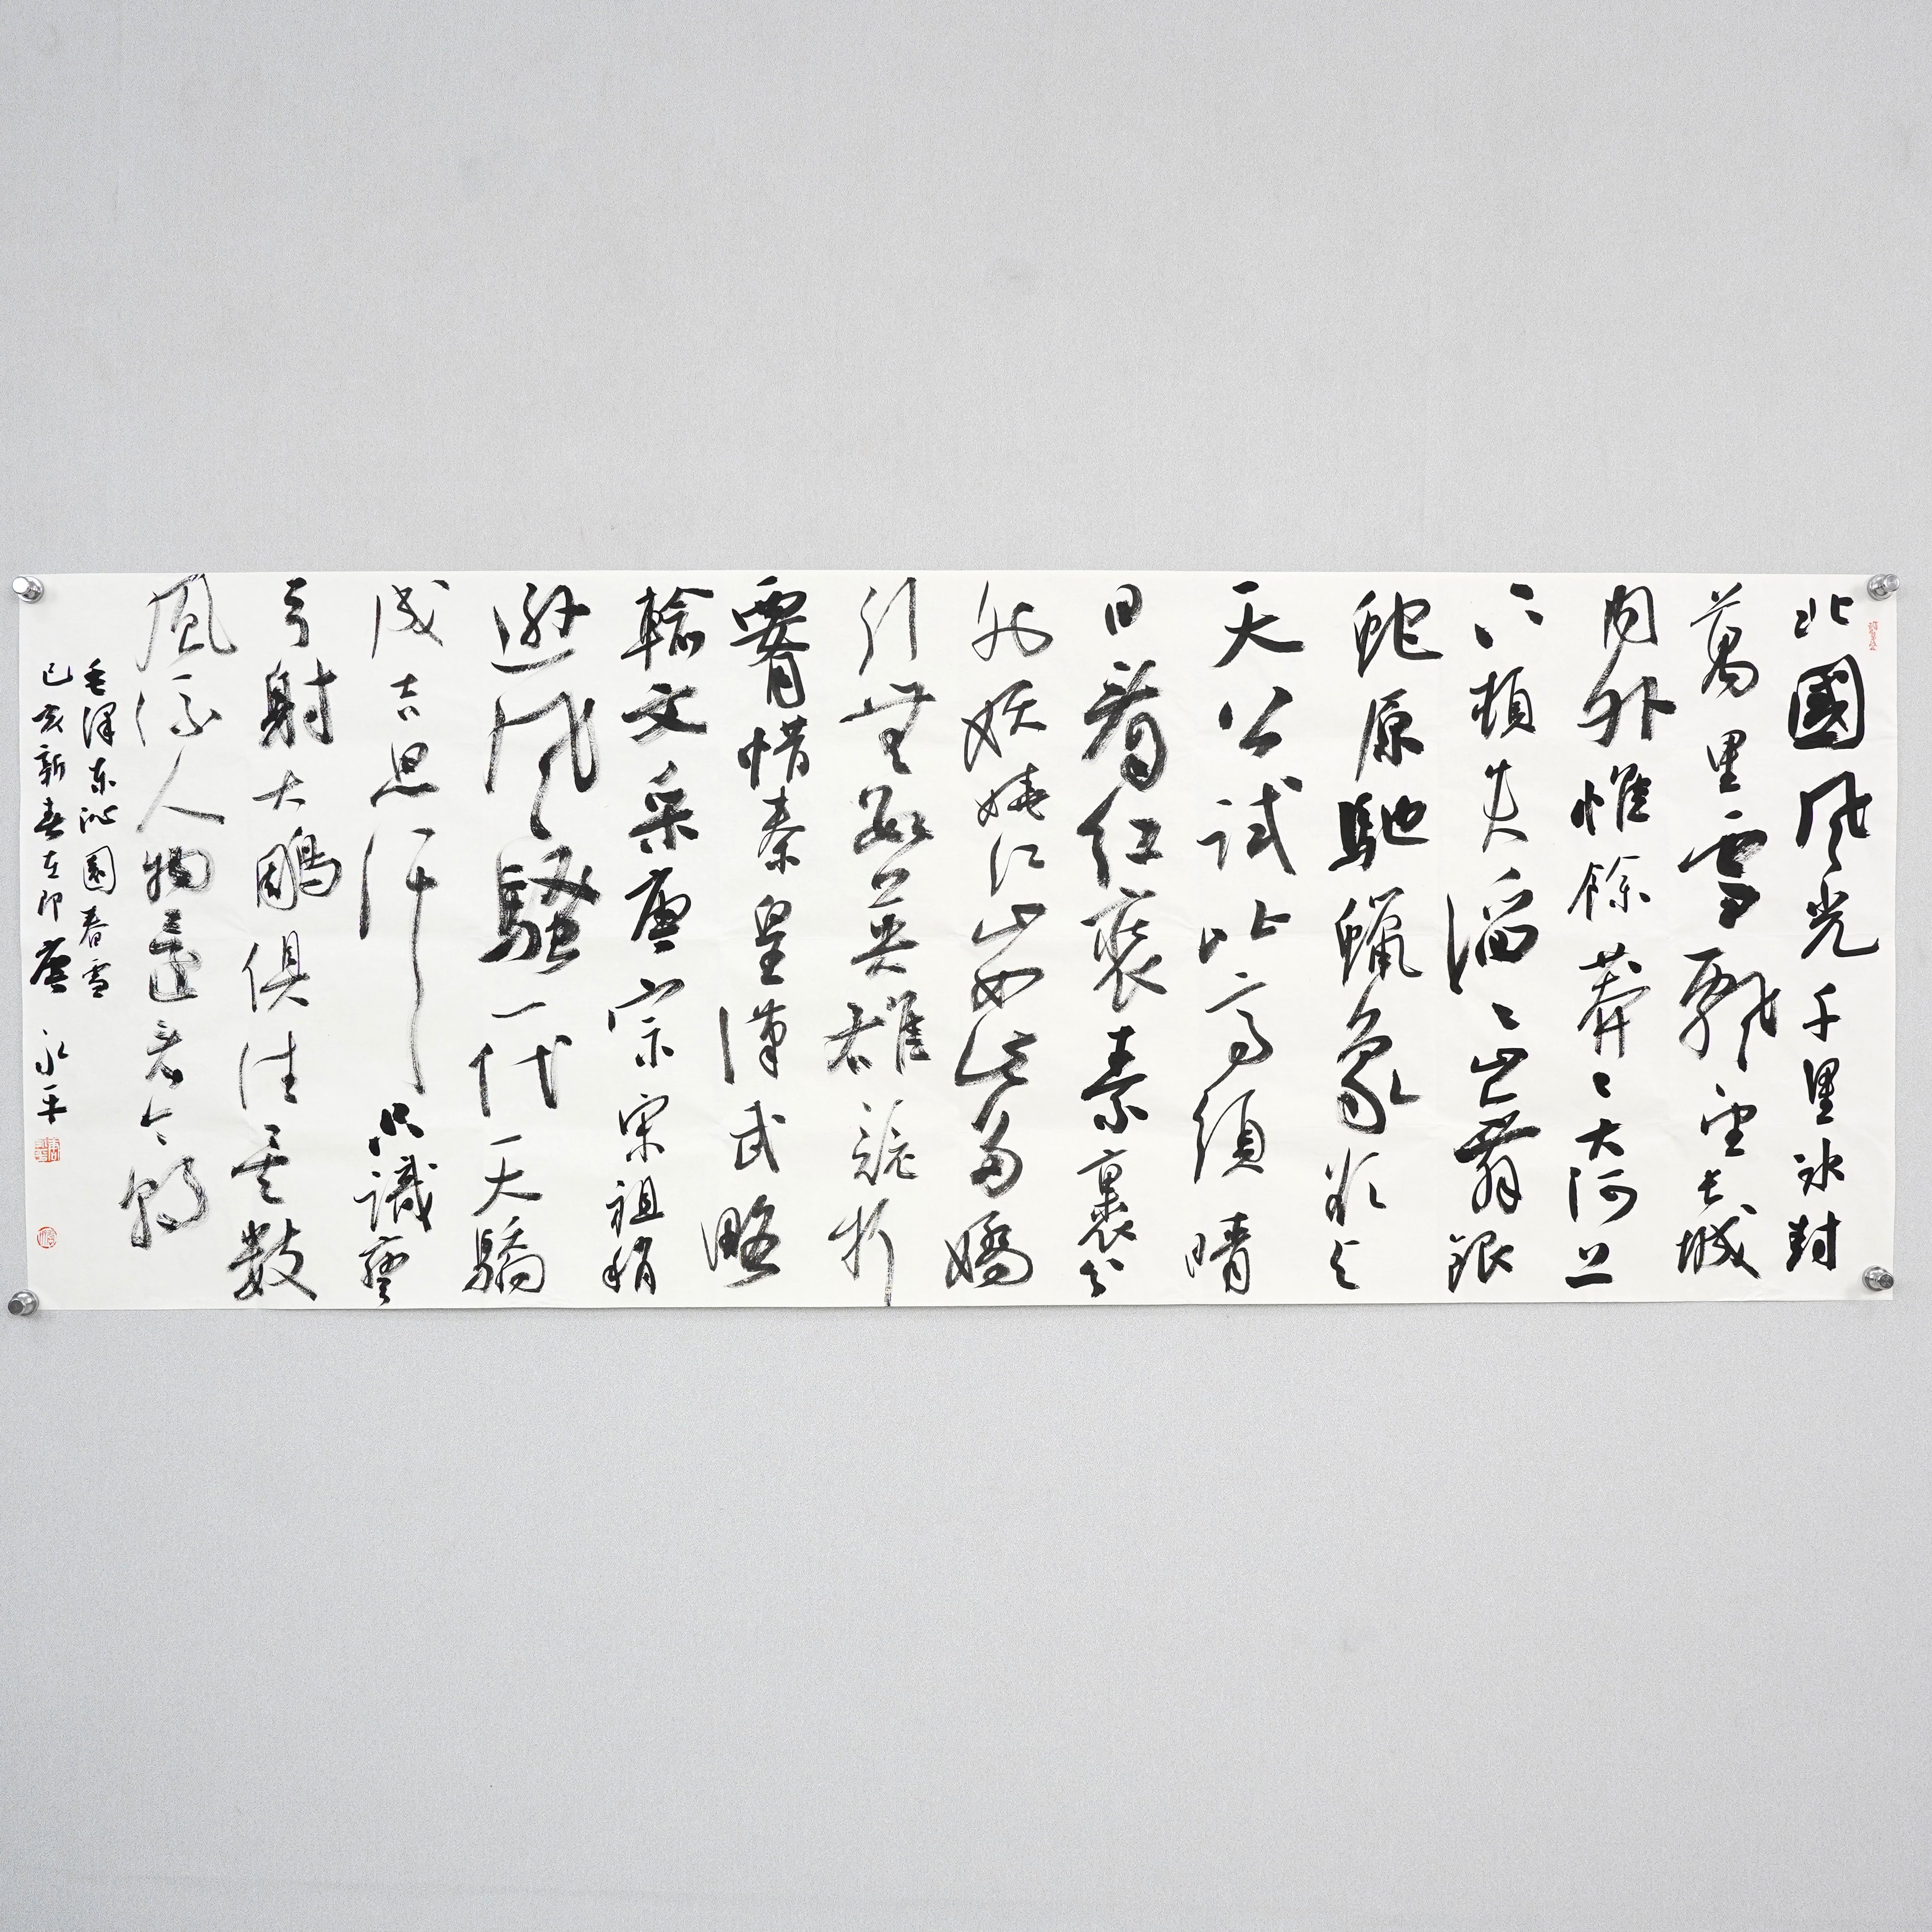 北國風光千里冰封
萬里雪飄望長城
内外惟餘莽〻大河上
下頓失滔〻山舞銀
蛇原馳蠟象欲与
天公試比高須晴
日看紅裝素裹分
外妖嬈江山如此多嬌
引無數英雄競折
腰惜秦皇漢武略
輸文采唐宗宋祖稍
遜風騷一代天驕
成吉思汗只識彎
弓射大鵰俱往矣數
風流人物還看今朝
毛澤东沁園春雪
己亥新春唐永平